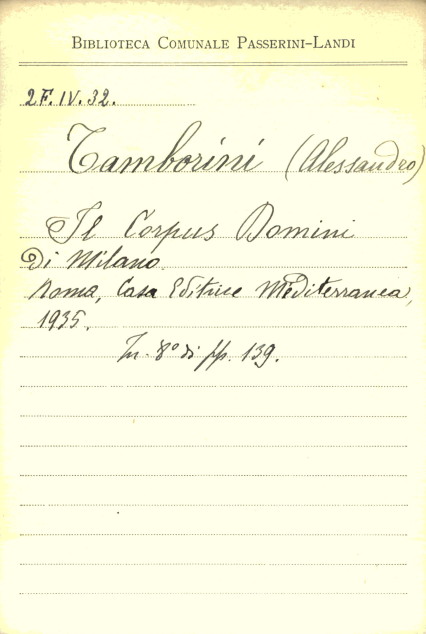 BIBLIOTECA COMUNALE PASSERINI-LANDI
2F.IV.32.
Tamborini (Alessandro)
Il Corpus Domini
di Milano.
Roma, Casa Editrice Mediterranea,
1935.
In-8° di pp. 139.